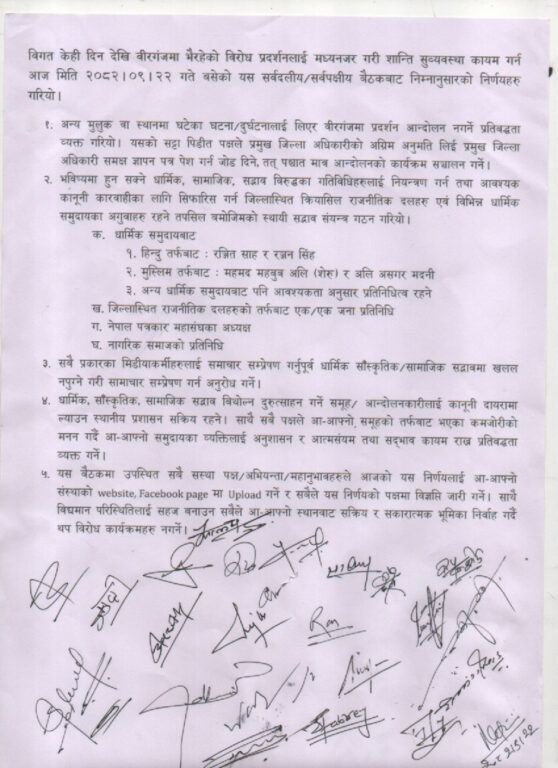 विगत केही दिन देखि वीरगंजमा भैरहेको विरोध प्रदर्शनलाई मध्यनजर गरी शान्ति सुव्यवस्था कायम गर्न
आज मिति २०८२।०९।२२ गते बसेको यस सर्वदलीय/सर्वपक्षीय बैठकबाट निम्नानुसारको निर्णयहरु
गरियो।
१. अन्य मुलुक वा स्थानमा घटेका घटना/दुर्घटनालाई लिएर वीरगंजमा प्रदर्शन आन्दोलन नगर्ने प्रतिबद्धता
व्यक्त गरियो। यसको सट्टा पिडीत पक्षले प्रमुख जिल्ला अधिकारीको अग्रिम अनुमति लिई प्रमुख जिल्ला
अधिकारी समक्ष ज्ञापन पत्र पेश गर्न जोड दिने, तत् पश्चात मात्र आन्दोलनको कार्यक्रम सञ्चालन गर्ने।
२. भविष्यमा हुन सक्ने धार्मिक, सामाजिक, सद्भाव विरुद्धका गतिविधिहरुलाई नियन्त्रण गर्न तथा आवश्यक
कानूनी कारवाहीका लागि सिफारिस गर्न जिल्लास्थित कियासिल राजनीतिक दलहरु एवं विभिन्न धार्मिक
समुदायका अगुवाहरु रहने तपसिल वमोजिमको स्थायी सद्भाव संयन्त्र गठन गरियो।
क. धार्मिक समुदायबाट
१. हिन्दु तर्फबाट : रञ्जित साह र रञ्जन सिंह
२. मुस्लिम तर्फबाट : महमद महबुब अलि (शेरु) र अलि असगर मदनी
३. अन्य धार्मिक समुदायबाट पनि आवश्यकता अनुसार प्रतिनिधित्व रहने
ख. जिल्लास्थित राजनीतिक दलहरुको तर्फबाट एक/एक जना प्रतिनिधि
ग. नेपाल पत्रकार महासंघका अध्यक्ष
घ. नागरिक समाजको प्रतिनिधि
३. सबै प्रकारका मिडीयाकर्मीहरुलाई समाचार सम्प्रेषण गर्नुपूर्व धार्मिक साँस्कृतिक/सामाजिक सद्भावमा खलल
नपुग्ने गरी सामाचार सम्प्रेषण गर्न अनुरोध गर्ने।
४. धार्मिक, साँस्कृतिक, सामाजिक सद्भाव बिथोल्न दुरुत्साहन गर्ने समूह/ आन्दोलनकारीलाई कानूनी दायरामा
ल्याउन स्थानीय प्रशासन सकिय रहने। साथै सबै पक्षले आ-आफ्नो समूहको तर्फबाट भएका कमजोरीको
मनन गर्दै आ-आफ्नो समुदायका व्यक्तिलाई अनुशासन र आत्मसंयम तथा सद्भाव कायम राख्न प्रतिबद्धता
व्यक्त गर्ने।
५. यस बैठकमा उपस्थित सबै सस्था पक्ष/अभियन्ता/महानुभावहरुले आजको यस निर्णयलाई आ-आफ्नो
संस्थाको website, Facebook page मा Upload गर्ने र सबैले यस निर्णयको पक्षमा विज्ञप्ति जारी गर्ने। साथै
विद्यमान परिस्थितिलाई सहज बनाउन सबैले आ-आफ्नो स्थानबाट सक्रिय र सकारात्मक भूमिका निर्वाह गर्दै
थप विरोध कार्यक्रमहरु नगर्ने।